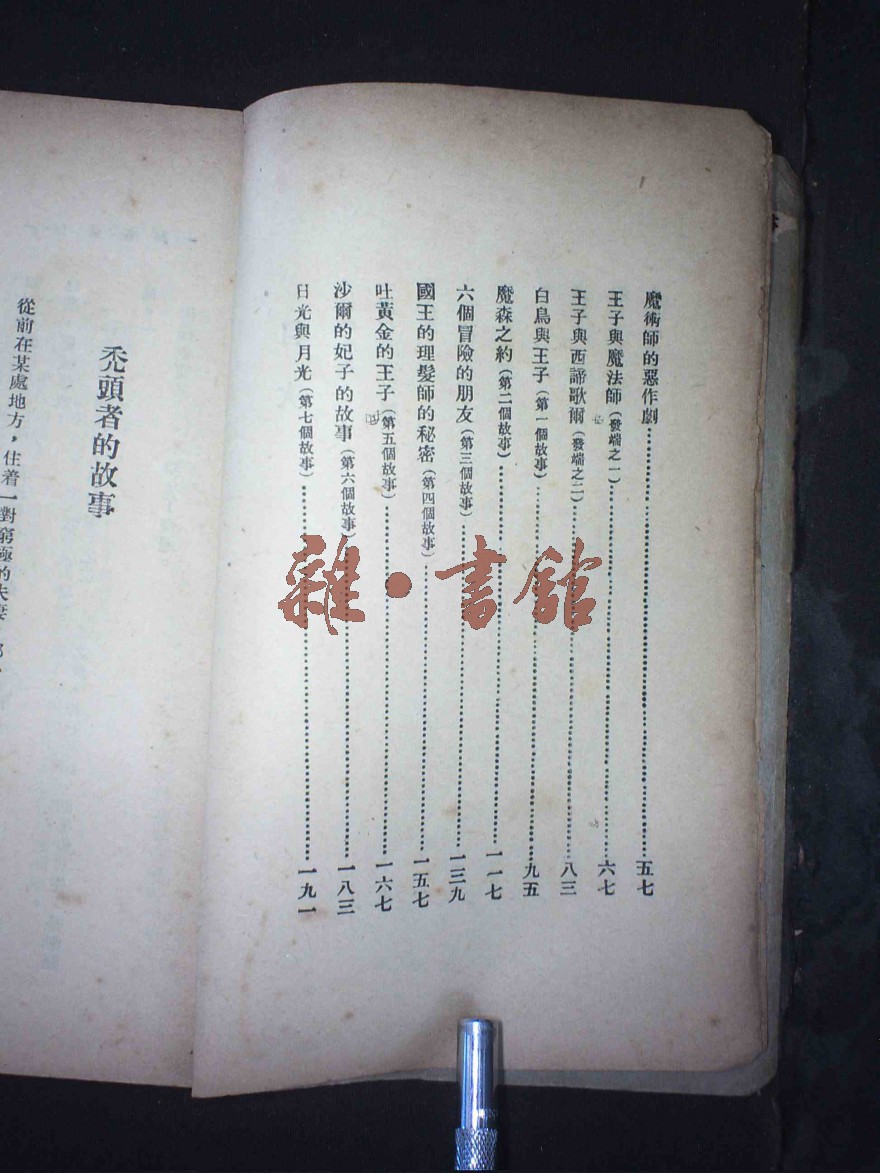 魔術師的惡作劇……五七
王子與魔法師（發端之一）……六七
王子與西諦歌爾（發端之二）……八三
白鳥與王子（第一個故事）……九五
魔森之約（第二個故事）……一一七
六個冒險的朋友（第三個故事）……一三九
國王的理髮師的秘密（第四個故事）……一五七
吐黃金的王子（第五個故事）……一六七
沙爾的妃子的故事（第六個故事）……一八三
日光與月光（第七個故事）……一九一
禿頭者的故事
從前在某處地方，住着一對窮極的夫妻
雜·書館